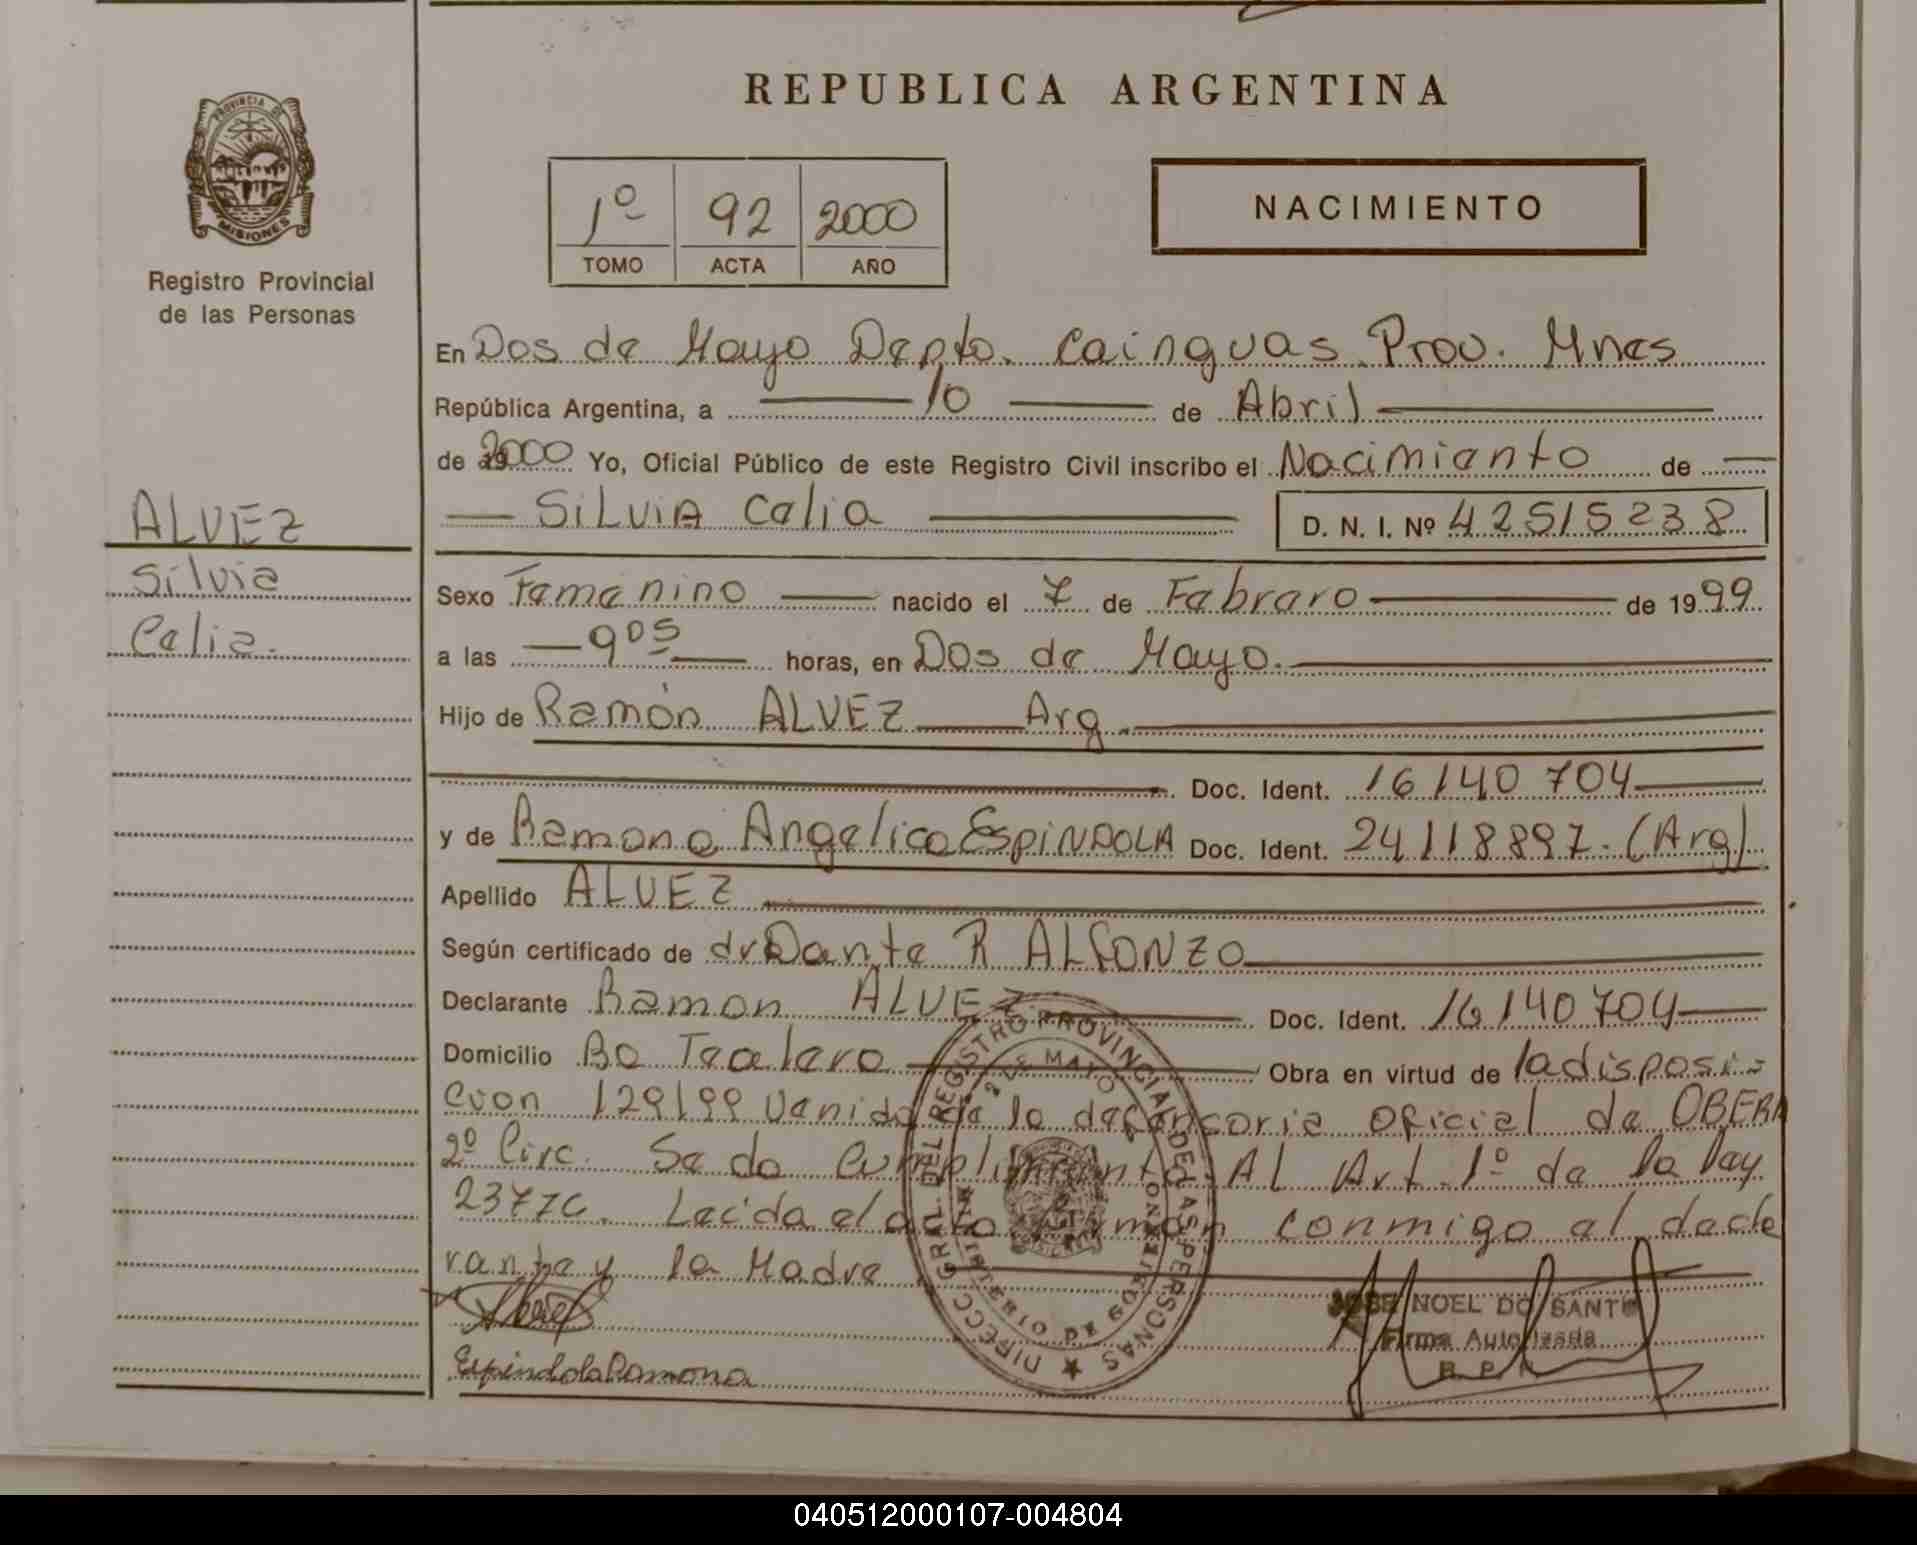 REPUBLICA ARGENTINA
PROVINCIA DE
MISIONES
Registro Provincial
de las Personas
1º 92 2000
TOMO ACTA AÑO
NACIMIENTO
En Dos de Mayo Depto. Cainguas Prov. Mnes
República Argentina, a 10 de Abril
de 2000 Yo, Oficial Público de este Registro Civil inscribo el Nacimiento de
SiLViA Celia D. N. I. Nº 42515238
ALVEZ
Silvia
Celia.
Sexo Femenino nacido el 7 de Febrero de 1999
a las 9 05 horas, en Dos de Mayo.
Hijo de Ramón ALVEZ Arg.
Doc. Ident. 16140704
y de Ramona Angelica EspiNDOLA Doc. Ident. 24118897. (Arg)
Apellido ALVEZ
Según certificado de dr Dante R ALFONZO
Declarante Ramon ALVEZ Doc. Ident. 16140704
Domicilio Bo Tealero Obra en virtud de la disposi-
cion 129/99 Venida de la defensoria oficial de OBERA
2º Circ. Se da Cumplimento AL Art. 1º de la ley
23776. Leida el acto firman conmigo el decla
rante y la Madre
Espindola Ramona
DIRECC. GRAL. DEL REGISTRO PROVINCIAL DE LAS PERSONAS
2 DE MAYO
MINISTERIO DE GOBIERNO
JOSE NOEL DO SANTO
Firma Autorizada
R. P. P.
040512000107-004804